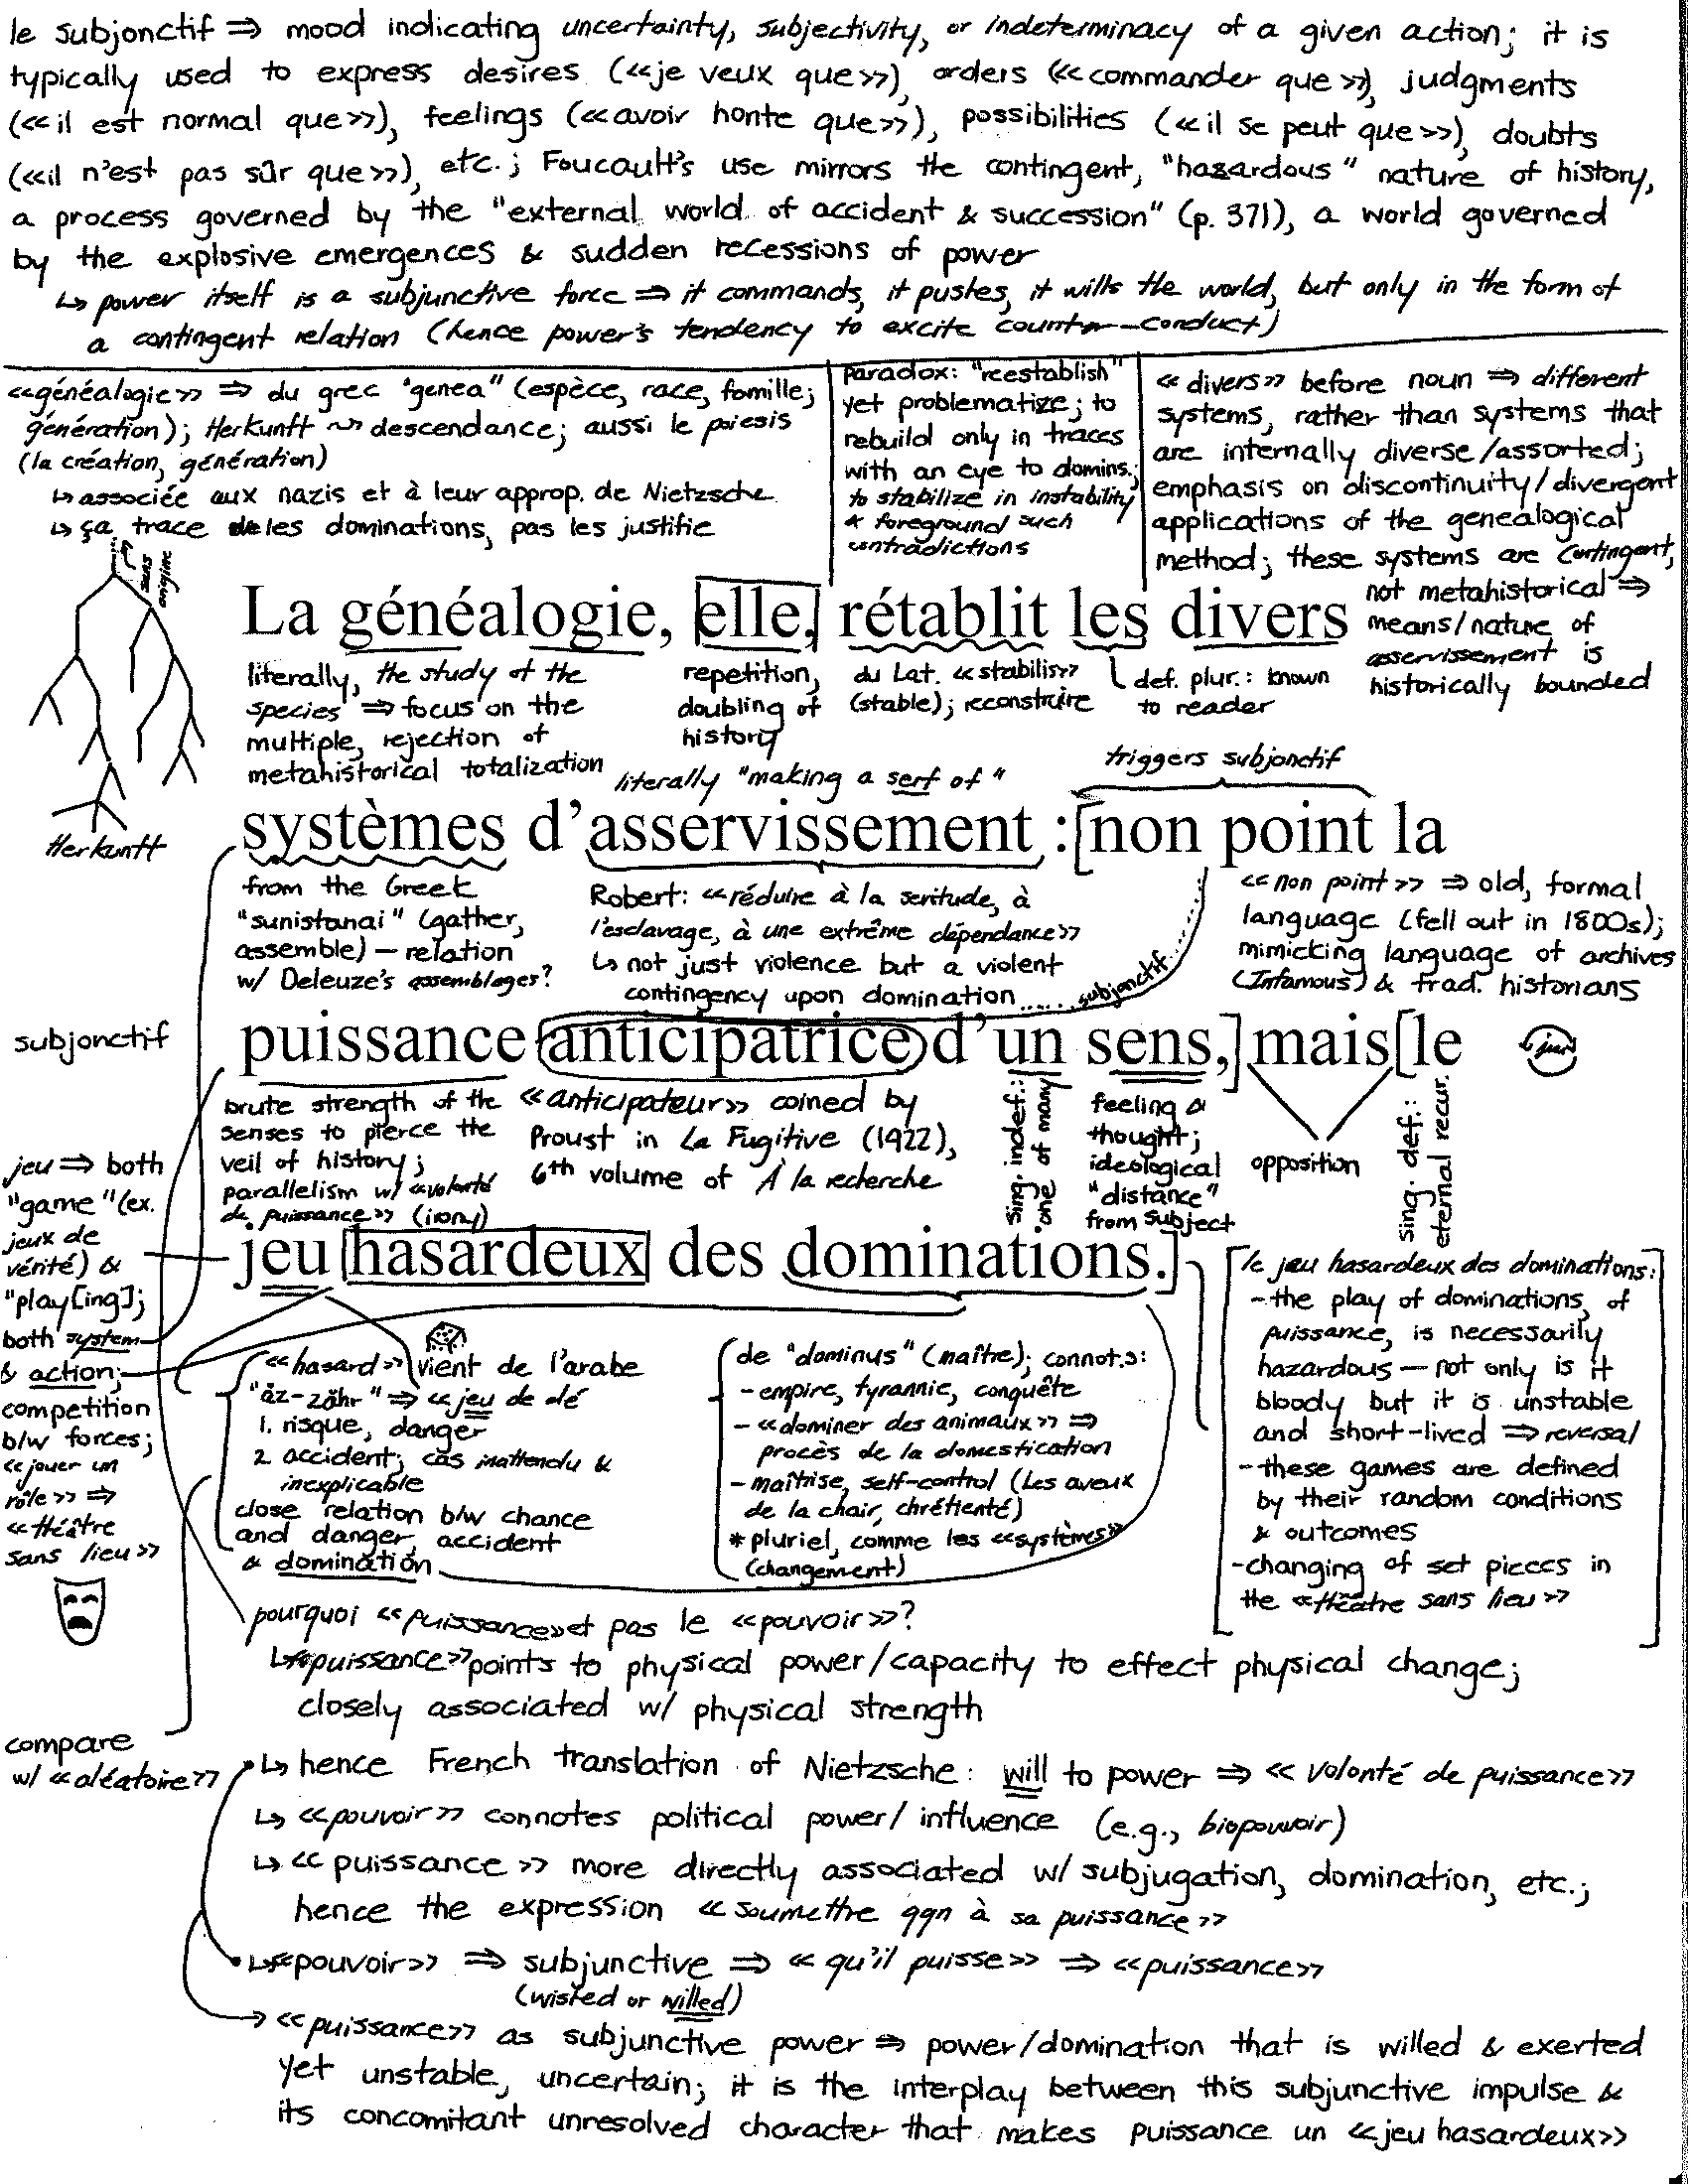 le subjonctif ⇒ mood indicating uncertainty, subjectivity, or indeterminacy of a given action; it is
typically used to express desires («je veux que»), orders («commander que»), judgments
(«il est normal que»), feelings («avoir honte que»), possibilities («il se peut que»), doubts
(«il n'est pas sûr que»), etc.; Foucault's use mirrors the contingent, "hazardous" nature of history,
a process governed by the "external world of accident & succession" (p. 371), a world governed
by the explosive emergences & sudden recessions of power
↳ power itself is a subjunctive force ⇒ it commands, it pushes, it wills the world, but only in the form of
a contingent relation (hence power's tendency to excite counter-conduct)
«généalogie» ⇒ du grec "genea" (espèce, race, famille;
génération); Herkunft ~> descendance; aussi le poiesis
(la création, génération)
↳ associée aux nazis et à leur approp. de Nietzsche
↳ ça trace les dominations, pas les justifie
sens
origine
Paradox: "reestablish"
yet problematize; to
rebuild only in traces
with an eye to domins.;
to stabilize in instability
& foreground such
contradictions
«divers» before noun ⇒ different
systems, rather than systems that
are internally diverse/assorted;
emphasis on discontinuity/divergent
applications of the genealogical
method; these systems are contingent,
not metahistorical ⇒
means/nature of
asservissement is
historically bounded
La généalogie, elle, rétablit les divers
literally, the study of the
species ⇒ focus on the
multiple, rejection of
metahistorical totalization
repetition,
doubling of
history
du Lat. «stabilis»
(stable); reconstruire
def. plur.: known
to reader
literally "making a serf of"
triggers subjonctif
Herkunft
systèmes d'asservissement : [non point la
from the Greek
"sunistanai" (gather,
assemble) — relation
w/ Deleuze's assemblages?
Robert: «réduire à la servitude, à
l'esclavage, à une extrême dépendance»
↳ not just violence but a violent
contingency upon domination ...... subjonctif...
«non point» ⇒ old, formal
language (fell out in 1800s);
mimicking language of archives
(Infamous) & trad. historians
subjonctif
puissance anticipatrice d'un sens,] mais [le
jeu
brute strength of the
senses to pierce the
veil of history;
parallelism w/ «volonté
de puissance» (irony)
«anticipateur» coined by
Proust in La Fugitive (1922),
6th volume of À la recherche
sing. indef.:
one of many
feeling &
thought;
ideological
"distance"
from subject
opposition
sing. def.:
eternal recur.
jeu hasardeux des dominations.]
jeu ⇒ both
"game" (ex.
jeux de
vérité) &
"play[ing];
both system
& action;
competition
b/w forces;
«jouer un
rôle» ⇒
«théâtre
sans lieu»
«hasard» vient de l'arabe
"āz-zāhr" ⇒ «jeu de dé
1. risque, danger
2. accident; cas inattendu &
inexplicable
close relation b/w chance
and danger, accident
& domination
de "dominus" (maître); connot.s:
- empire, tyrannie, conquête
- «dominer des animaux» ⇒
procès de la domestication
- maîtrise, self-control (Les aveux
de la chair, chrétienté)
* pluriel, comme les «systèmes»
(changement)
le jeu hasardeux des dominations:
- the play of dominations, of
puissance, is necessarily
hazardous — not only is it
bloody but it is unstable
and short-lived ⇒ reversal
- these games are defined
by their random conditions
& outcomes
- changing of set pieces in
the «théâtre sans lieu»
pourquoi «puissance» et pas le «pouvoir»?
↳ «puissance» points to physical power/capacity to effect physical change;
closely associated w/ physical strength
compare
w/ «aléatoire»
↳ hence French translation of Nietzsche: will to power ⇒ «volonté de puissance»
↳ «pouvoir» connotes political power/influence (e.g., biopouvoir)
↳ «puissance» more directly associated w/ subjugation, domination, etc.;
hence the expression «soumettre qqn à sa puissance»
↳ «pouvoir» ⇒ subjunctive ⇒ «qu'il puisse» ⇒ «puissance»
(wished or willed)
→ «puissance» as subjunctive power ⇒ power/domination that is willed & exerted
yet unstable, uncertain; it is the interplay between this subjunctive impulse &
its concomitant unresolved character that makes puissance un «jeu hasardeux»